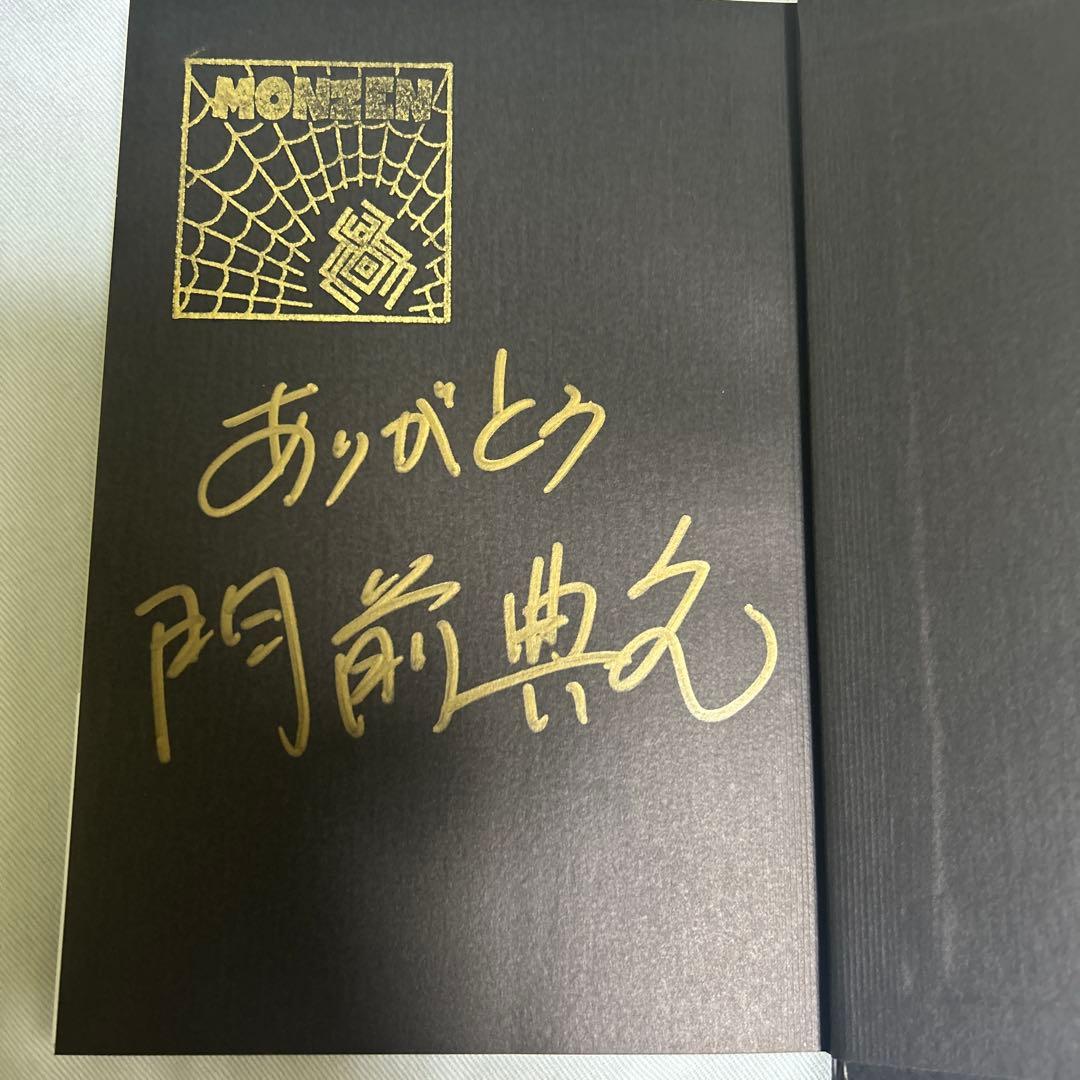 MONZEN
ありがとう
門前典之